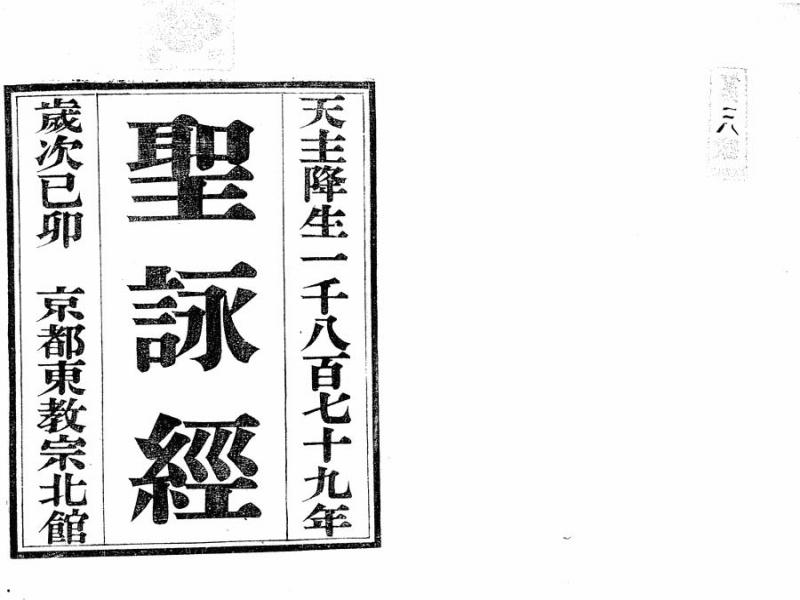 天主降生一千八百七十九年
聖詠經
歲次己卯 京都東教宗北館